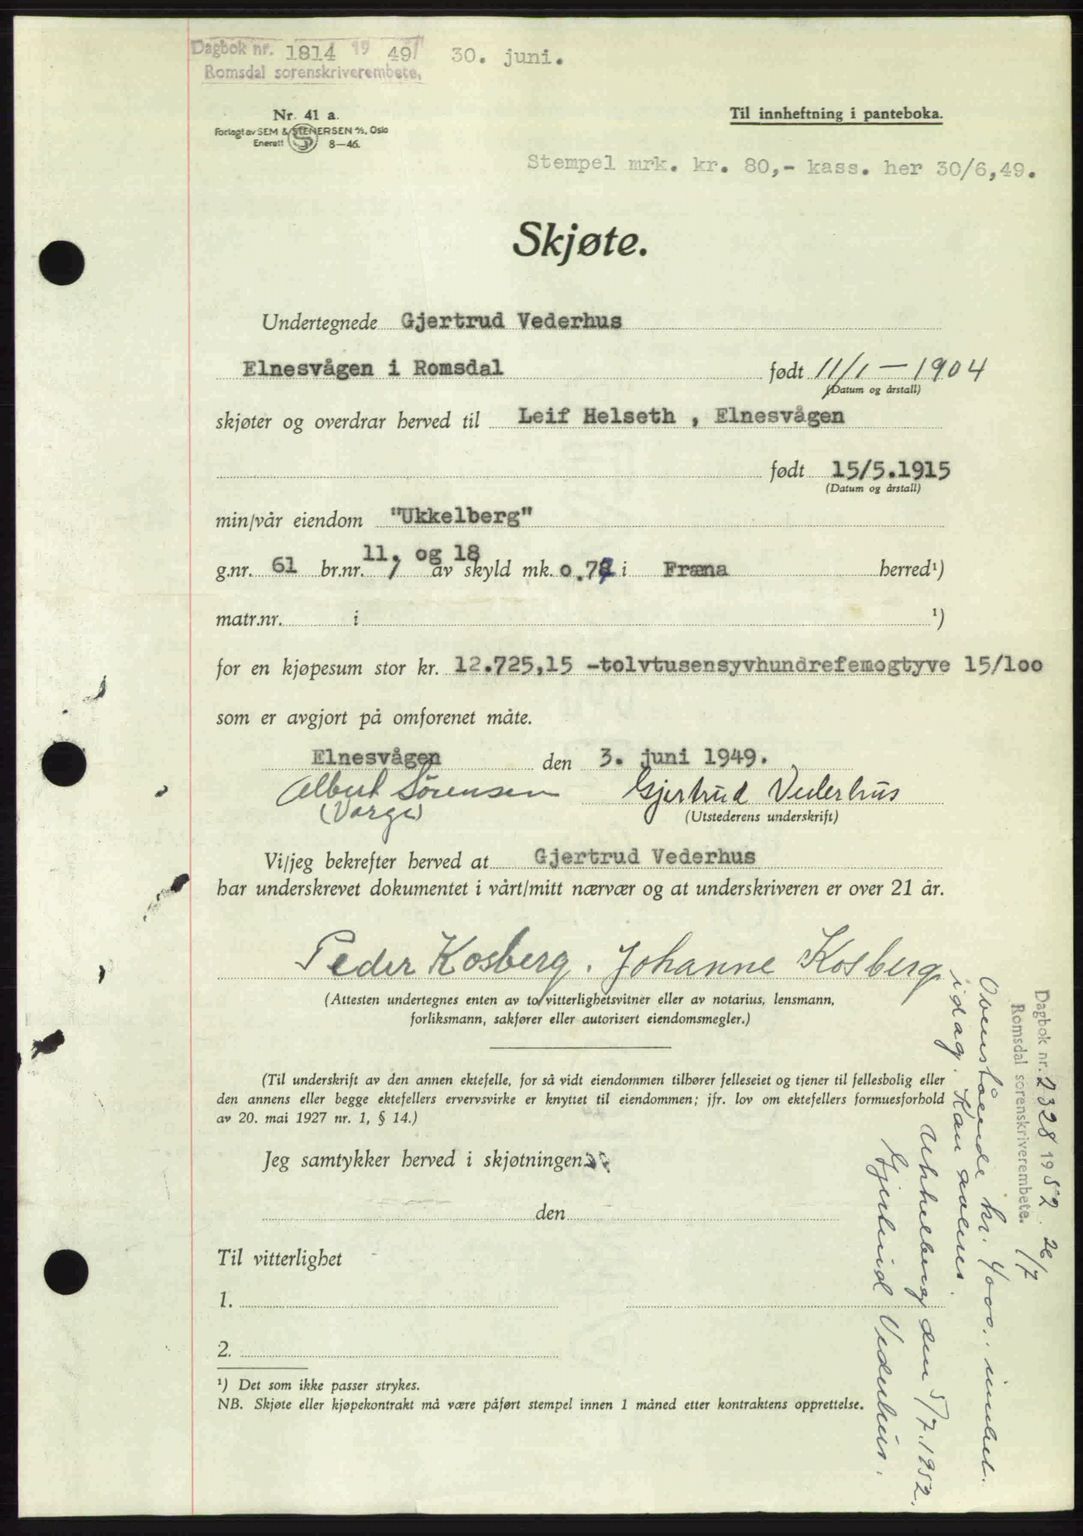 Dagbok nr. 1814 19 49 30. juni.
Romsdal sorenskriverembete.
Nr. 41 a.
Forlagt av SEM & STENERSEN A/S, Oslo
Enerett 8—46.
Til innheftning i panteboka.
Stempel mrk. kr. 80,- kass. her 30/6,49.
Skjøte.
Undertegnede Gjertrud Vederhus
Elnesvågen i Romsdal født 11/1 — 1904
(Datum og årstall)
skjøter og overdrar herved til Leif Helseth , Elnesvågen
født 15/5.1915
(Datum og årstall)
min/vår eiendom "Ukkelberg"
g.nr. 61 br.nr. 11, og 18 av skyld mk. 0.7 i Fræna herred¹)
matr.nr. i ¹)
for en kjøpesum stor kr. 12.725,15 -tolvtusensyvhundrefemogtyve 15/100
som er avgjort på omforenet måte.
Elnesvågen den 3. juni 1949.
Albert Sørensen Gjertrud Vederhus
(Verge) (Utstederens underskrift)
Vi/jeg bekrefter herved at Gjertrud Vederhus
har underskrevet dokumentet i vårt/mitt nærvær og at underskriveren er over 21 år.
Peder Kosberg. Johanne Kosberg
(Attesten undertegnes enten av to vitterlighetsvitner eller av notarius, lensmann,
forliksmann, sakfører eller autorisert eiendomsmegler.)
(Til underskrift av den annen ektefelle, for så vidt eiendommen tilhører felleseiet og tjener til fellesbolig eller
den annens eller begge ektefellers ervervsvirke er knyttet til eiendommen; jfr. lov om ektefellers formuesforhold
av 20. mai 1927 nr. 1, § 14.)
Jeg samtykker herved i skjøtningen.
den
Til vitterlighet
1.
2.
¹) Det som ikke passer strykes.
NB. Skjøte eller kjøpekontrakt må være påført stempel innen 1 måned etter kontraktens opprettelse.
Dagbok nr. 2328 1952. 26/7
Romsdal sorenskriverembete.
Ovenstående kr. 4000,
idag. Kan
Ukkelberg den 5/7.1952.
Gjertrud Vederhus.